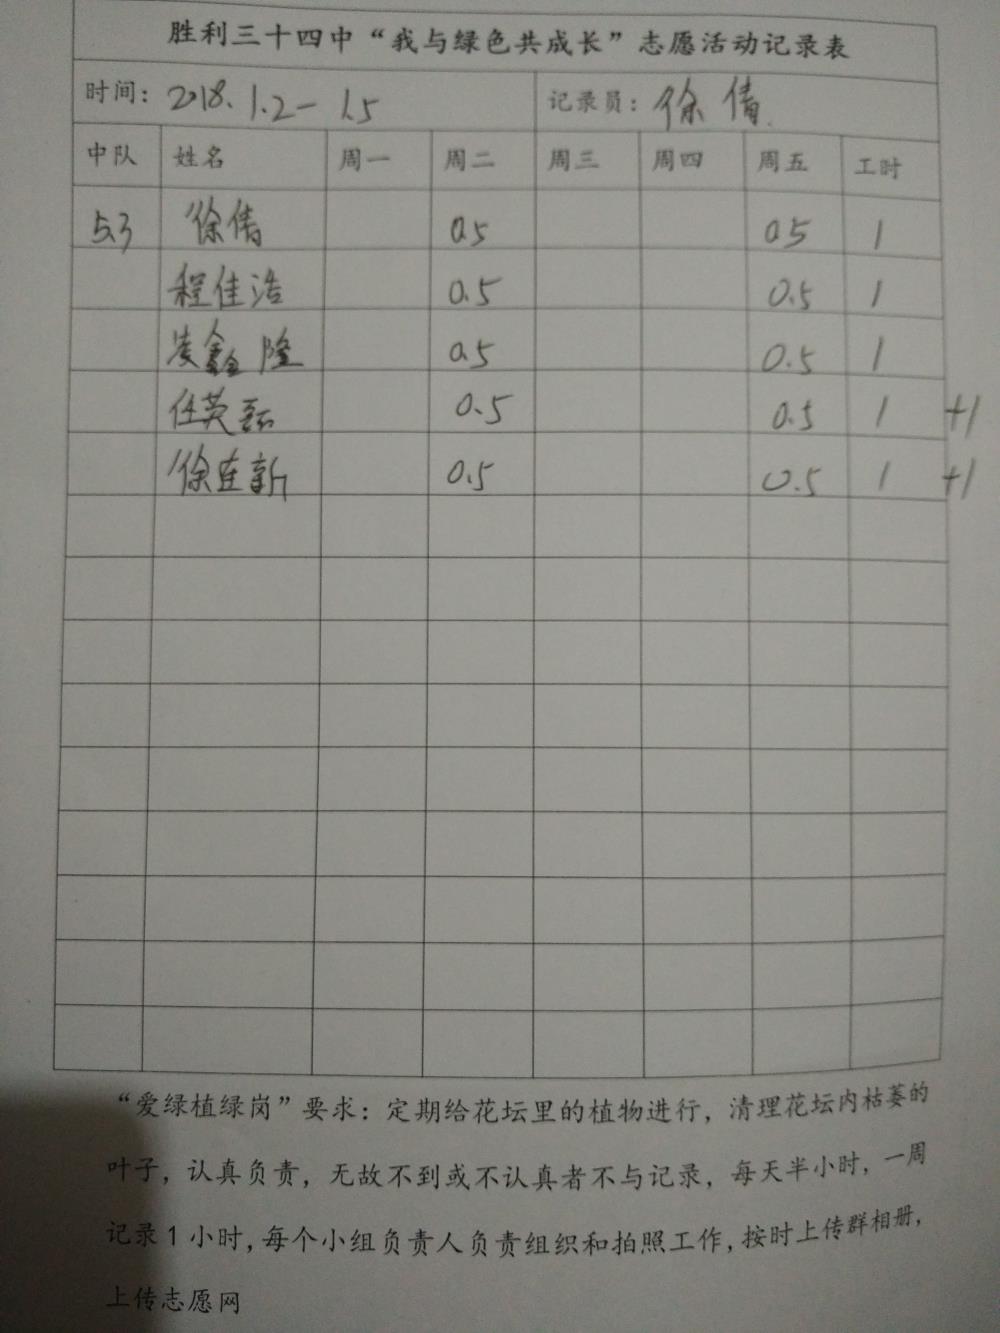 胜利三十四中“我与绿色共成长”志愿活动记录表
时间：2018.1.2-1.5 记录员：徐倩
中队 姓名 周一 周二 周三 周四 周五 工时
5.3 徐倩 0.5 0.5 1
程佳浩 0.5 0.5 1
凌鑫隆 0.5 0.5 1
任英磊 0.5 0.5 1 +1
徐连新 0.5 0.5 1 +1
“爱绿植绿岗”要求：定期给花坛里的植物进行，清理花坛内枯萎的
叶子，认真负责，无故不到或不认真者不与记录，每天半小时，一周
记录1小时，每个小组负责人负责组织和拍照工作，按时上传群相册，
上传志愿网